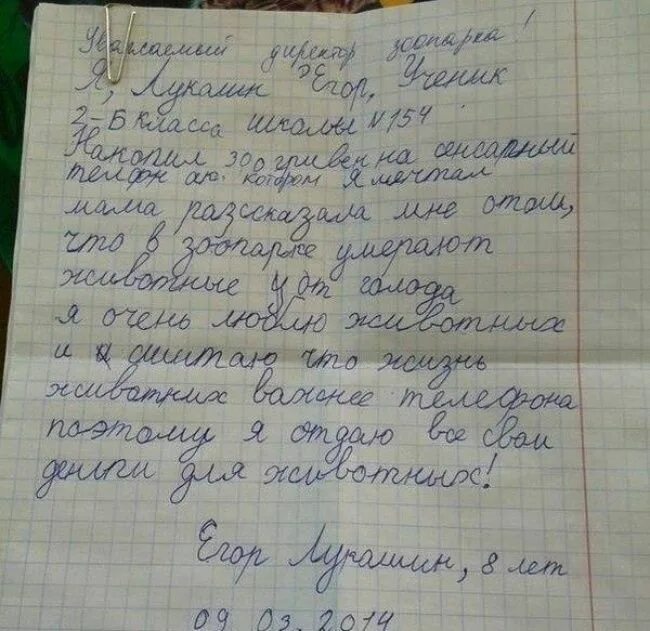 Уважаемый директор зоопарка!
Я, Лукашин Егор, Ученик
2-Б класса школы №154
Накопил 300 гривен на сенсарный
телфон аю. котором я мечтал
мама разссказала мне отом,
что в зоопарке умерают
животные у от голода
я очень люблю животных
и я сшитаю что жизнь
животних важнее телефона
поэтому я отдаю все свои
деньги для животных!
Егор Лукашин, 8 лет
09 03. 2014